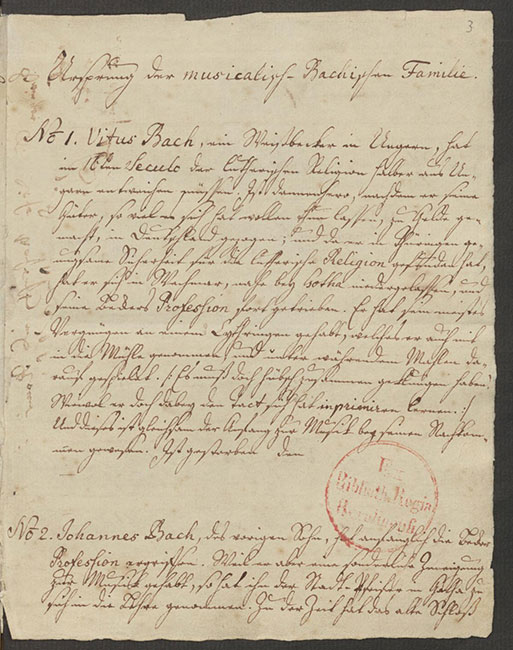 3
Ursprung der musicalisch-Bachischen Familie.
No 1. Vitus Bach, ein Weißbecker in Ungern, hat
im 16ten Seculo der lutherischen Religion halber aus Un-
garn entweichen müssen. Ist dannenhero, nachdem er seine
Güter, so viel es sich hat wollen thun lassen, zu Gelde ge-
macht, in Deutschland gezogen; und da er in Thüringen ge-
nugsame Sicherheit für die lutherische Religion gefunden hat,
hat er sich in Wechmar, nahe bey Gotha niedergelassen, und
seine Beckers Profession fort getrieben. Er hat sein meistes
Vergnügen an einem Cythringen gehabt, welches er auch mit
in die Mühle genommen, und unter währendem Mahlen da-
rauf gespielet. /: Es muß doch hübsch zusammen geklungen haben!
Wiewol er doch dabey den Tact sich hat inprimiren lernen. :/
Und dieses ist gleichsam der Anfang zur Musik bey seinen Nachkom-
men gewesen. Ist gestorben den
Ex
Biblioth. Regia
Berolinensi.
No 2. Johannes Bach, des vorigen Sohn, hat anfänglich die Becker
Profession ergriffen. Weil er aber eine sonderliche Zuneigung
zur Musik gehabt, so hat ihn der Stadt Pfeifer in Gotha zu
sich in die Lehre genommen. Zu der Zeit hat das alte Schloß